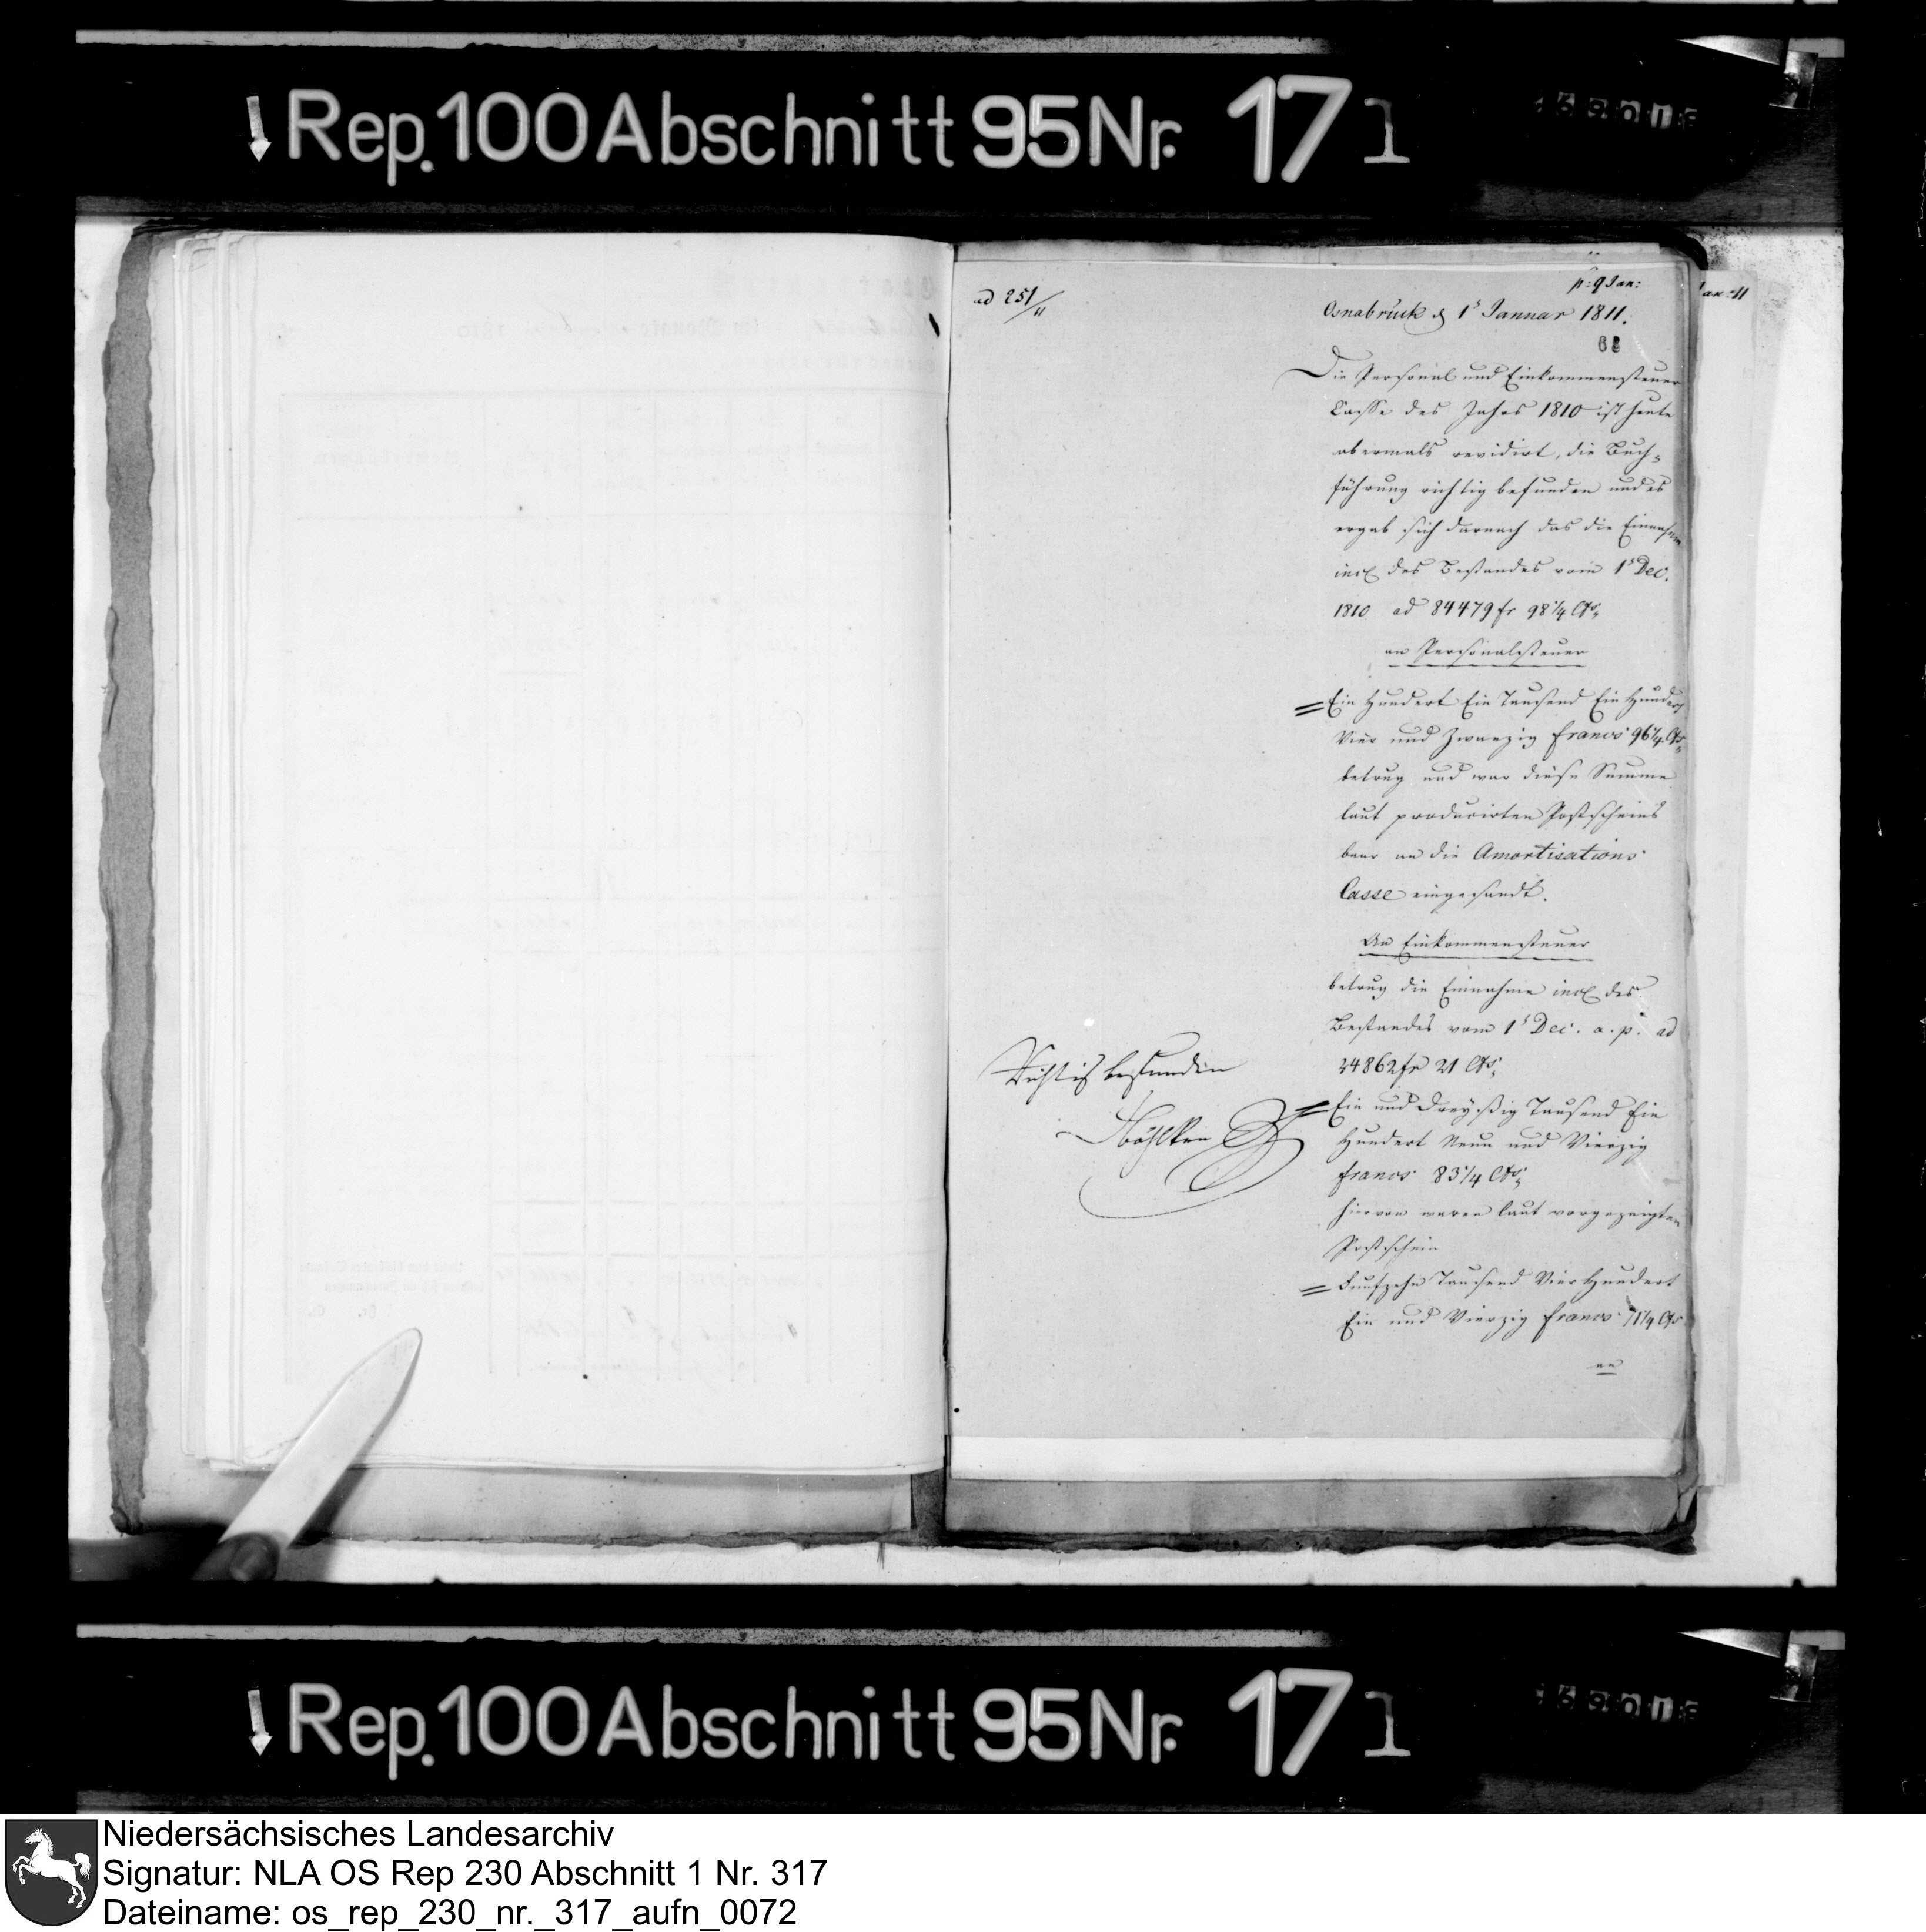 Rep. 100 Abschnitt 95 Nr. 171
ad 251/11
p: 9 Jan:
Jan: 11
Osnabrück d 1s Januar 1811.
Die Personal und Einkommensteuer
Casse des Jahrs 1810 ist heute
abermals revidirt, die Buch-
führung richtig befunden und es
ergab sich darnach das die Einnahme
incl des Bestandes vom 1s Dec.
1810 ad 84479 fr 98 1/4 Cts.
an Personalsteuer
= Ein Hundert Ein Tausend Ein Hundert
Vier und Zwanzig francs 96 1/4 Cts.
betrug und war diese Summe
laut producirten Postscheins
baar an die Amortisations
Casse eingesandt.
An Einkommensteuer
betrug die Einnahme incl des
Bestandes vom 1s Dec. a. p. ad
24862 fr 21 Cts.
= Ein und Dreyßig Tausend Ein
Hundert Neun und Vierzig
francs 83 1/4 Cts.
hiervon waren laut vorgezeigten
Postschein
= Funfzehn Tausend Vier Hundert
Ein und Vierzig francs 71 1/4 Cts
an
Richtig befunden
Rep. 100 Abschnitt 95 Nr. 171
Niedersächsisches Landesarchiv
Signatur: NLA OS Rep 230 Abschnitt 1 Nr. 317
Dateiname: os_rep_230_nr._317_aufn_0072